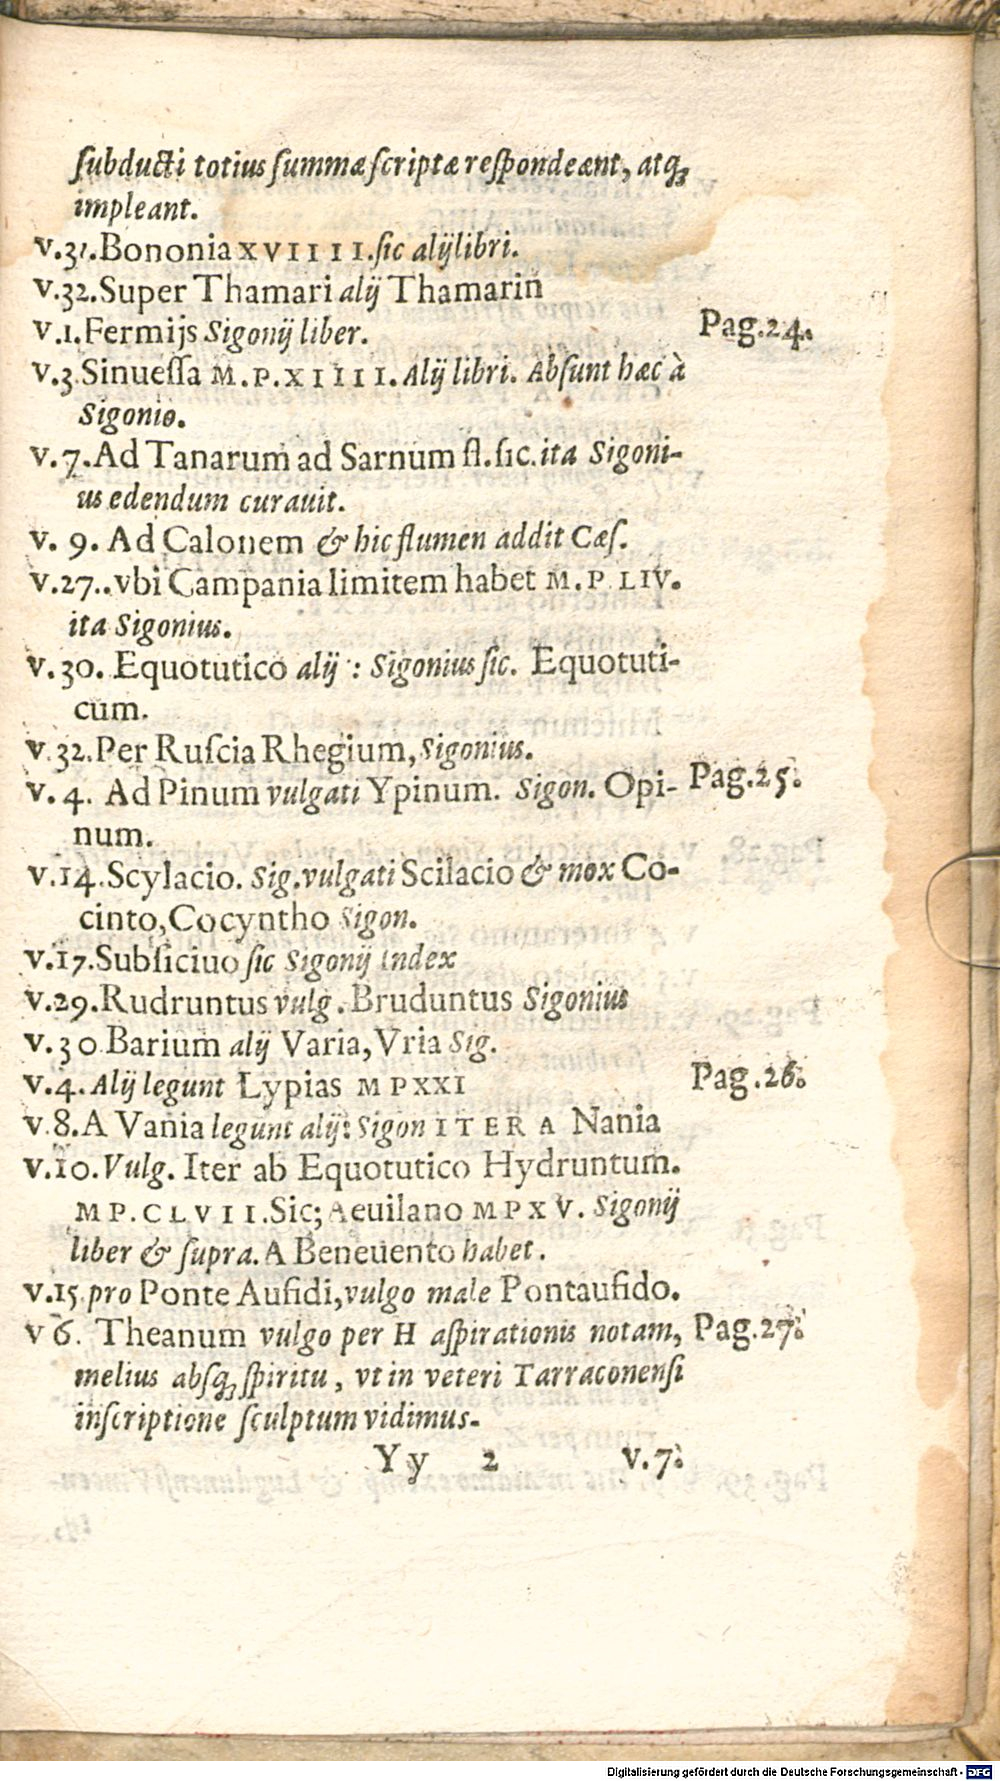 subducti totius summæ scriptæ respondeænt, atq;
impleant.
v.31.Bononia XVIIIII.sic alij libri.
v.32.Super Thamari alij Thamarin
v.1.Fermijs Sigonij liber. Pag.24.
v.3.Sinuessa M.P.XIIII. Alij libri. Absunt hæc à
Sigonio.
v.7.Ad Tanarum ad Sarnum fl.sic.ita Sigoni-
us edendum curauit.
v. 9. Ad Calonem & hic flumen addit Cæs.
v.27..vbi Campania limitem habet M.P LIV.
ita Sigonius.
v.30. Equotutico alij : Sigonius sic. Equotuti-
cum.
v.32.Per Ruscia Rhegium, Sigonius.
v.4. Ad Pinum vulgati Ypinum. Sigon. Opi- Pag.25.
num.
v.14.Scylacio. Sig.vulgati Scilacio & mox Co-
cinto, Cocyntho Sigon.
v.17.Subsiciuo sic Sigonij index
v.29.Rudruntus vulg. Bruduntus Sigonius
v.30 Barium alij Varia, Vria Sig.
v.4. Alij legunt Lypias MPXXI Pag.26.
v.8.A Vania legunt alij: Sigon ITERA Nania
v.10.Vulg. Iter ab Equotutico Hydruntum.
MP.CLVII.Sic; Aeuilano MPXV. Sigonij
liber & supra. A Beneuento habet.
v.15.pro Ponte Aufidi, vulgo male Pontaufido.
v 6. Theanum vulgo per H aspirationis notam, Pag.27.
melius absq; spiritu, vt in veteri Tarraconensi
inscriptione sculptum vidimus.
Yy 2 v.7.
Digitalisierung gefördert durch die Deutsche Forschungsgemeinschaft - DFG